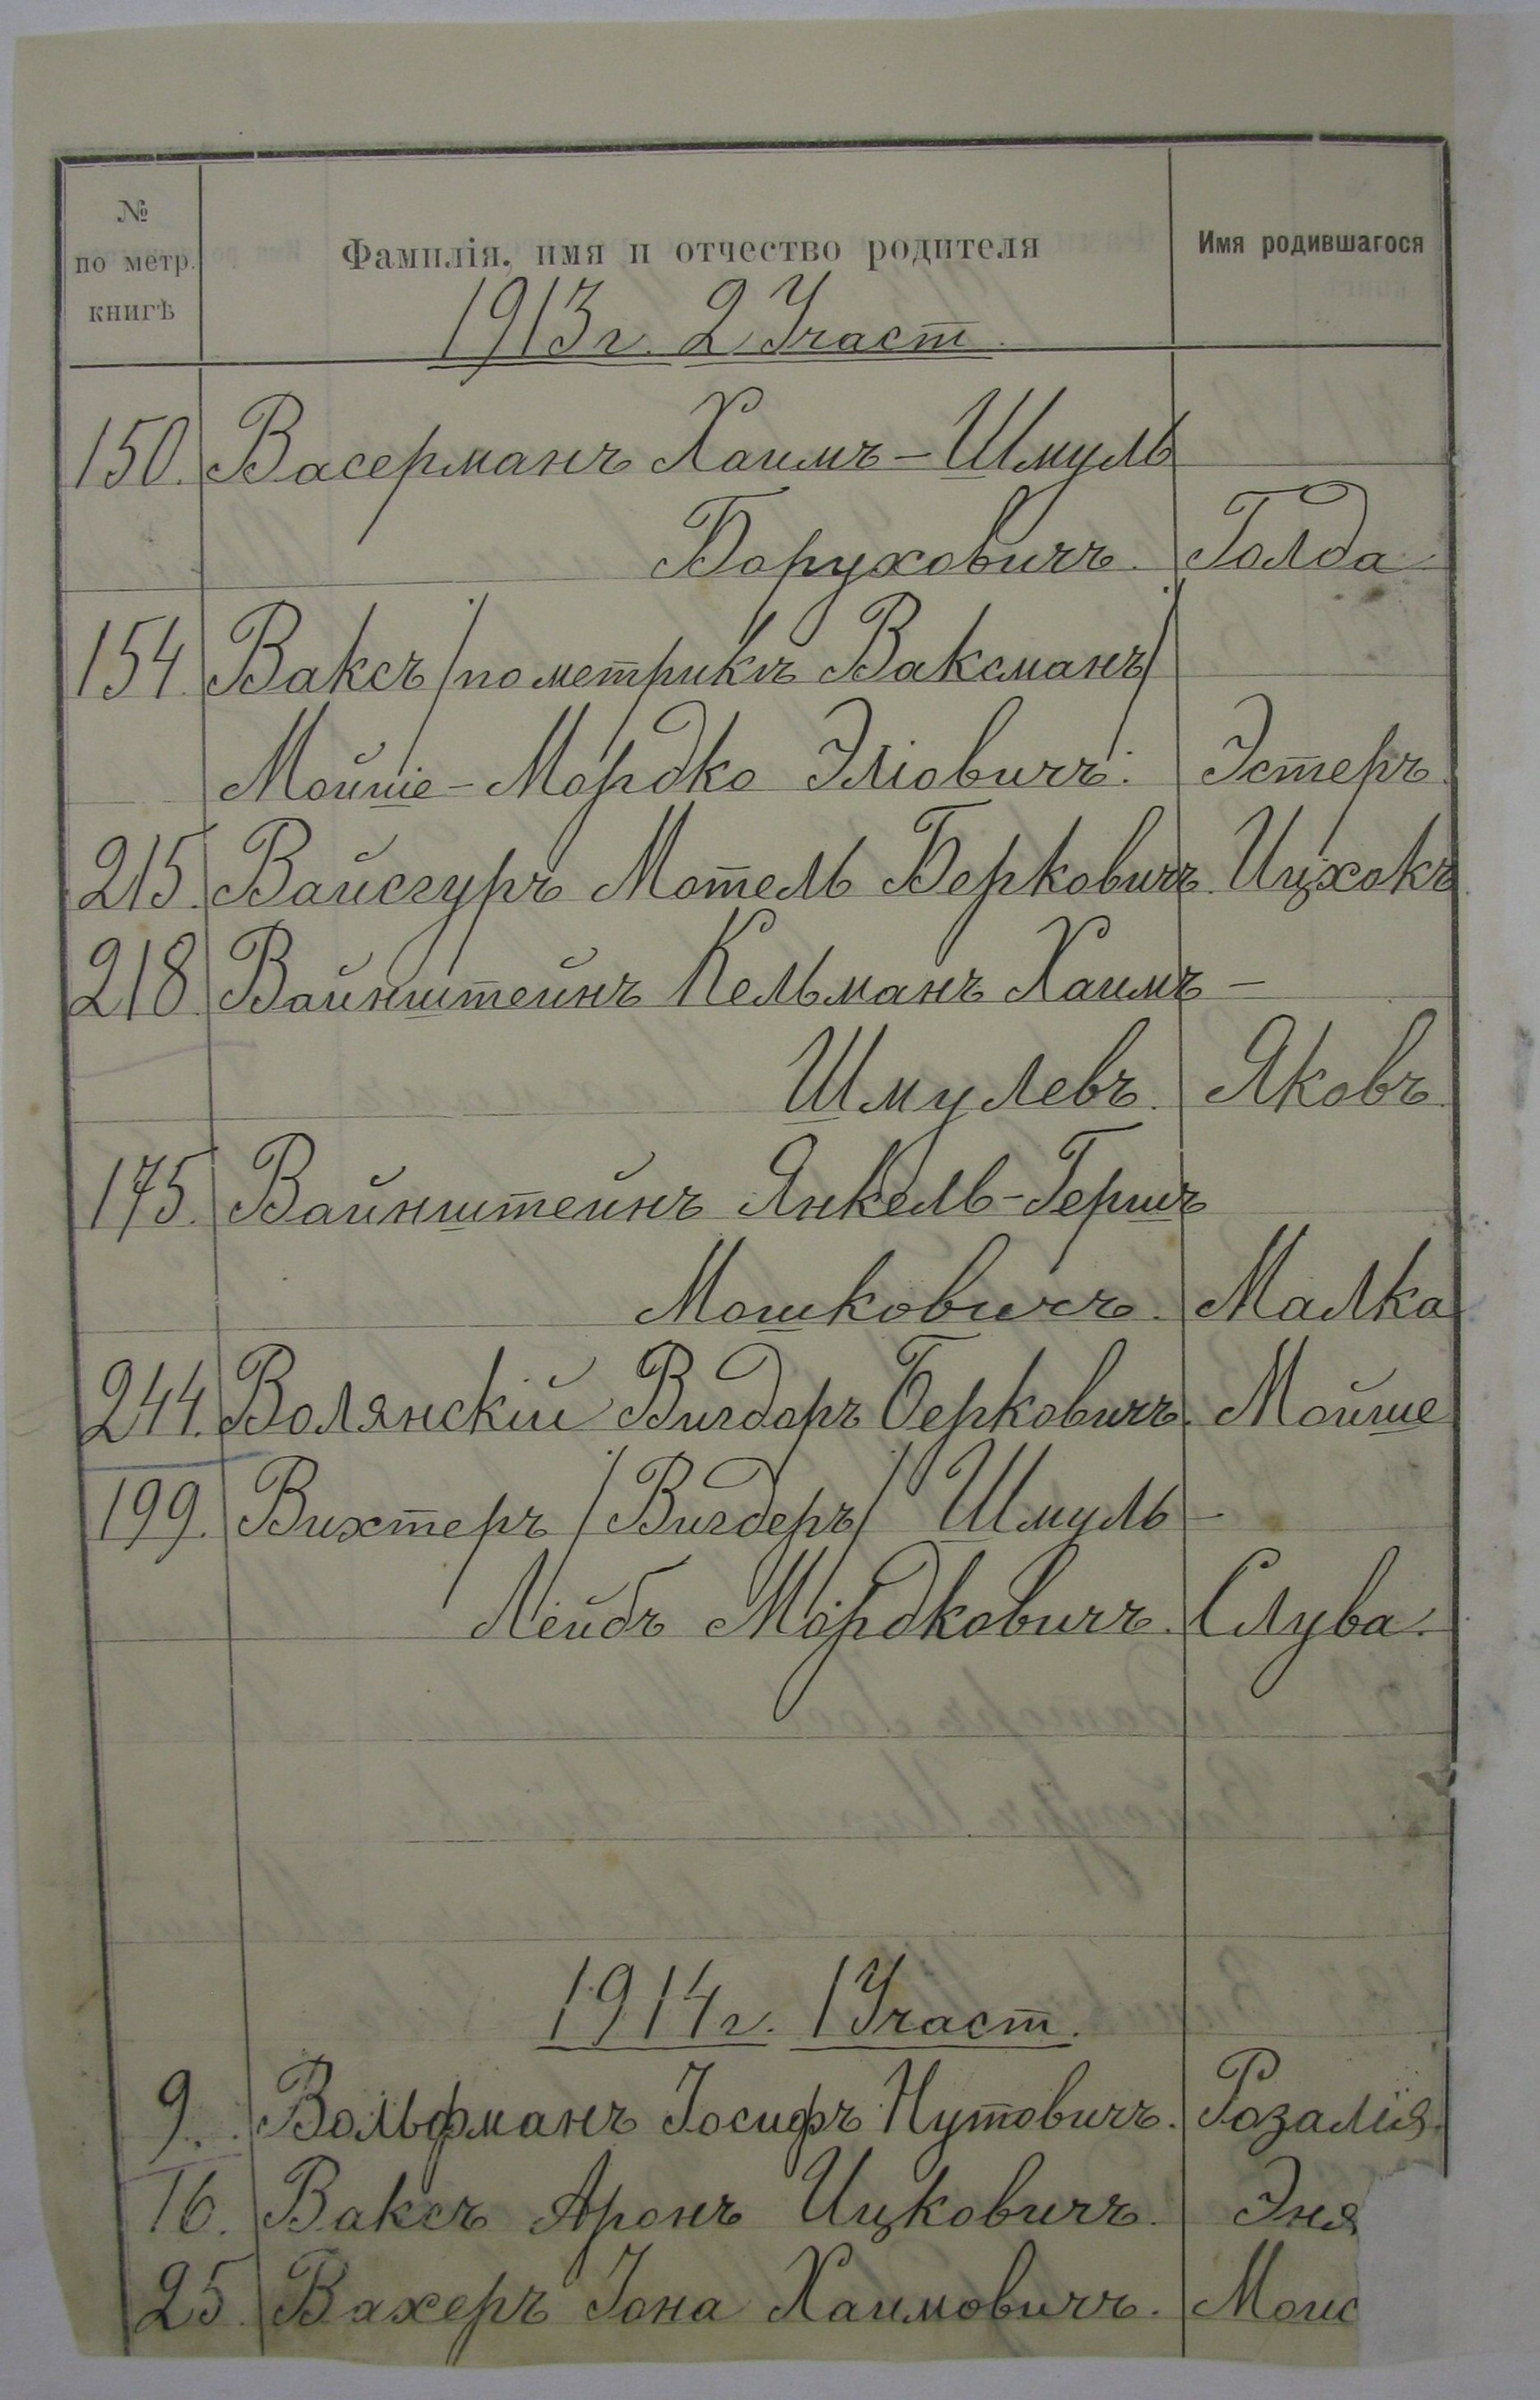 №
по метр.
книгѣ
Фамилія, имя и отчество родителя
Имя родившагося
1913 г. 2 Участ.
150. Васерманъ Хаимъ-Шмуль
Боруховичъ. Голда
154. Ваксъ /по метрикѣ Ваксманъ/
Мойше-Мордко Эліовичъ. Эстеръ.
215. Вайсгуръ Мотель Берковичъ. Ицхокъ
218. Вайнштейнъ Кельманъ Хаимъ-
Шмулевъ. Яковъ.
175. Вайнштейнъ Янкель-Гершъ
Мошковичъ. Малка
244. Волянскій Вигдоръ Берковичъ. Мойше
199. Вихтеръ /Вигдеръ/ Шмуль-
Лейбъ Мордковичъ. Слува.
1914 г. 1 Участ.
9. Вольфманъ Іосифъ Нутовичъ. Розалія.
16. Ваксъ Аронъ Ицковичъ. Эня
25. Вахеръ Іона Хаимовичъ.